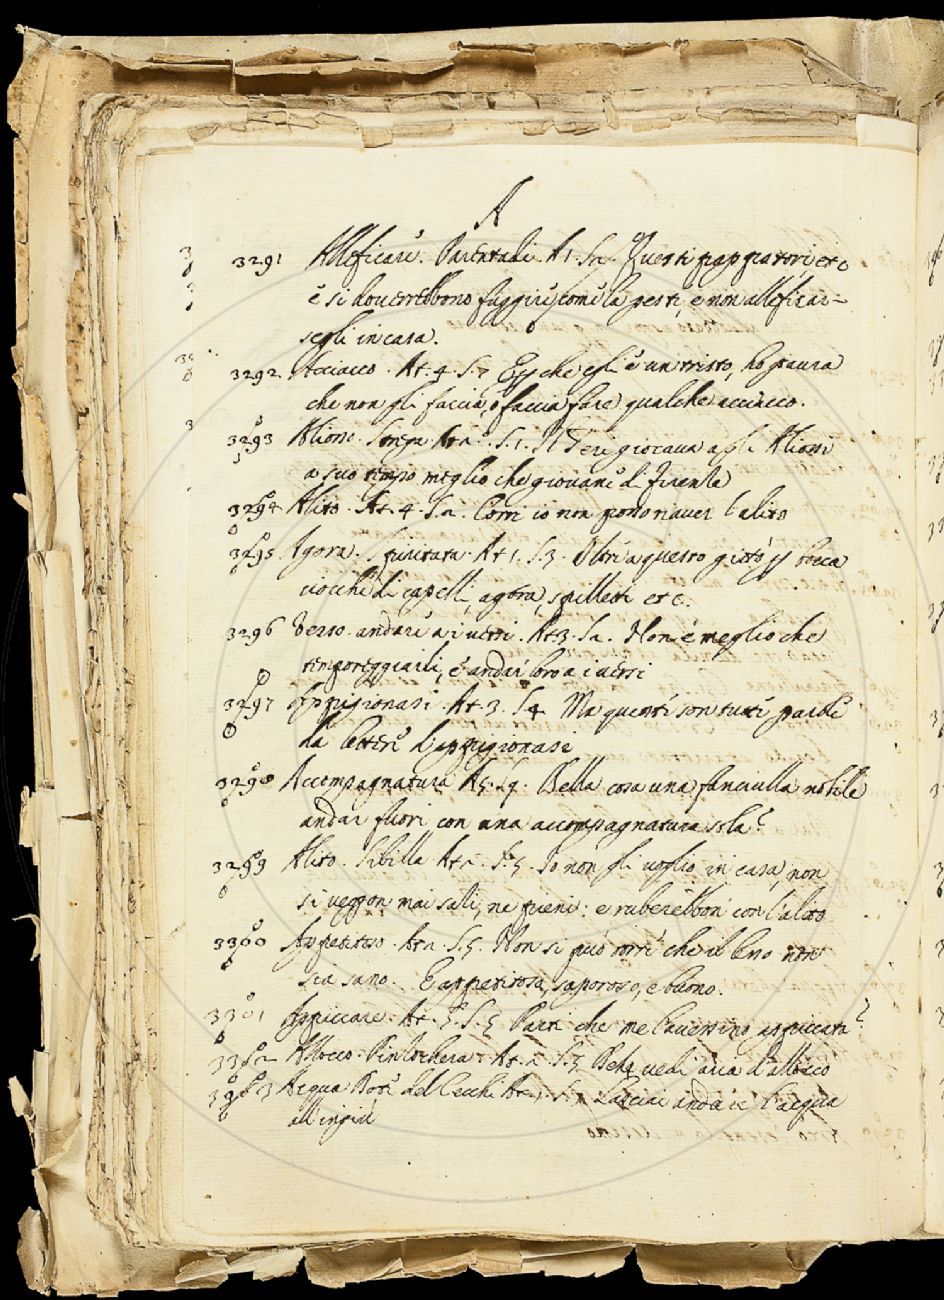 A
3291 Alleficare. Parentadi. A. 1. S. 2. Questi pappatori, etc
e si dovrebbono fuggire come la peste, e non alleficar=
segli in casa.
3292. Acciacco. At. 4. S. 7 che egli è un tristo, ho paura
che non gli faccia, o faccia fare qualche acciacco.
3293 Aliossi S. 1. Il Teri giocava agli Aliossi
a suo tempo meglio che giovane di Firenze
3294 Alito. At. 4. S. 2. Corri io non posso riaver l'alito
3295 Agora. Spiritata. At 1. S. 3. Oltre a questo gettò p bocca
ciocche di capelli, agora, spilletti etc.
3296 Verso. andare a i versi. At 3. S. 2. Non è meglio che
temporeggiarli, e andar loro a i versi
3297 Appigionasi. At. 3. S. 4 Ma queste son tutte parole
da lettere d'appigionasi
3298 Accompagnatura A 5. S. 9. Bella cosa una fanciulla nobile
andar fuori con una accompagnatura sola?
3299 Alito. Sibilla At 2. S. 5. Io non gli voglio in casa, non
si veggon mai satij, ne pieni: e ruberebbon con l'alito
3300 Appetitoso. At 2. S. 5. Non si può dire che il non
sia sano. E appetitoso, saporoso, e buono.
3301 Appiccare. At. 5. S. 5 Parti che me l'avessino appiccata?
3302 Allocco. Pinzochera. At. 2. S. 3 vedi aria d'allocco
3303 Acqua. Dote del Cecchi At Lasciar andare l'acqua
all'ingiù